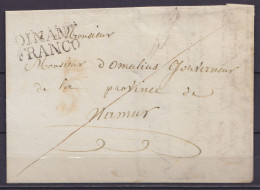 DINANT
FRANCO
Monsieur
Monsieur d'Omalius Gouverneur
de la province de
Namur